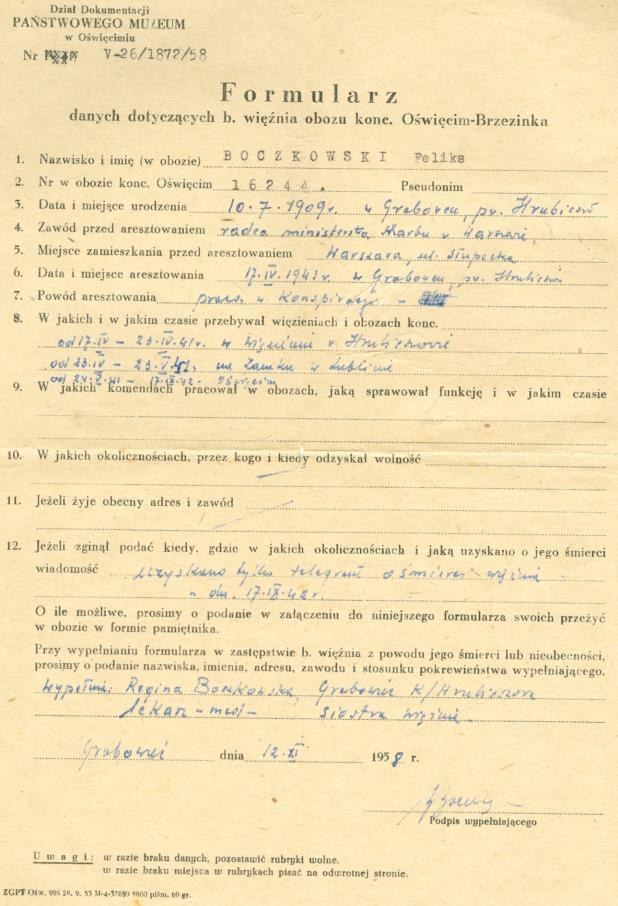 Dział Dokumentacji
PAŃSTWOWEGO MUZEUM
w Oświęcimiu
Nr V-26/1872/58
Formularz
danych dotyczących b. więźnia obozu konc. Oświęcim-Brzezinka
1. Nazwisko i imię (w obozie) BOCZKOWSKI Feliks
2. Nr w obozie konc. Oświęcim 16244. Pseudonim
3. Data i miejsce urodzenia 10.7.1909r. w Grabowcu, pow. Hrubieszów
4. Zawód przed aresztowaniem radca ministerstwa Skarbu w Warszawie,
5. Miejsce zamieszkania przed aresztowaniem Warszawa, ul. Słupecka
6. Data i miejsce aresztowania 17.IV.1941r. w Grabowcu, pow. Hrubieszów
7. Powód aresztowania praca w Konspiracji -
8. W jakich i w jakim czasie przebywał więzieniach i obozach konc.
od 17.IV - 23.IV.41r. w więzieniu w Hrubieszowie
od 23.IV - 23.V.41. na Zamku w Lublinie
od 24.V.41 - 17.IX.42. Oświęcim
9. W jakich komendach pracował w obozach, jaką sprawował funkcję i w jakim czasie
10. W jakich okolicznościach, przez kogo i kiedy odzyskał wolność
11. Jeżeli żyje obecny adres i zawód
12. Jeżeli zginął podać kiedy, gdzie w jakich okolicznościach i jaką uzyskano o jego śmierci
wiadomość uzyskano tylko telegram o śmierci więźnia
w dn. 17.IX.42r.
O ile możliwe, prosimy o podanie w załączeniu do niniejszego formularza swoich przeżyć
w obozie w formie pamiętnika.
Przy wypełnianiu formularza w zastępstwie b. więźnia z powodu jego śmierci lub nieobecności,
prosimy o podanie nazwiska, imienia, adresu, zawodu i stosunku pokrewieństwa wypełniającego.
wypełnia: Regina Boczkowska, Grabowiec K/Hrubieszowa
lekarz - siostra więźnia.
Grabowiec dnia 12.XI 1958 r.
Podpis wypełniającego
Uwagi: w razie braku danych, pozostawić rubryki wolne.
w razie braku miejsca w rubrykach pisać na odwrotnej stronie.
ZGPT Ośw. 996 29. 9. 53 M-4-37899 5000 piśm. 60 gr.